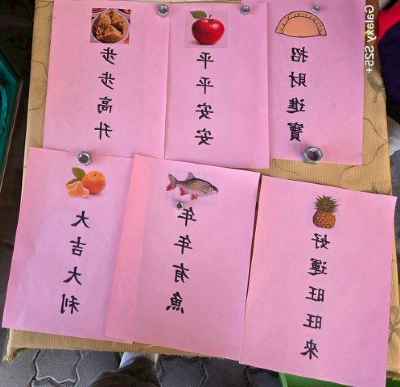 步步高升
平平安安
招財進寶
大吉大利
年年有魚
好運旺旺來
Galaxy S25+